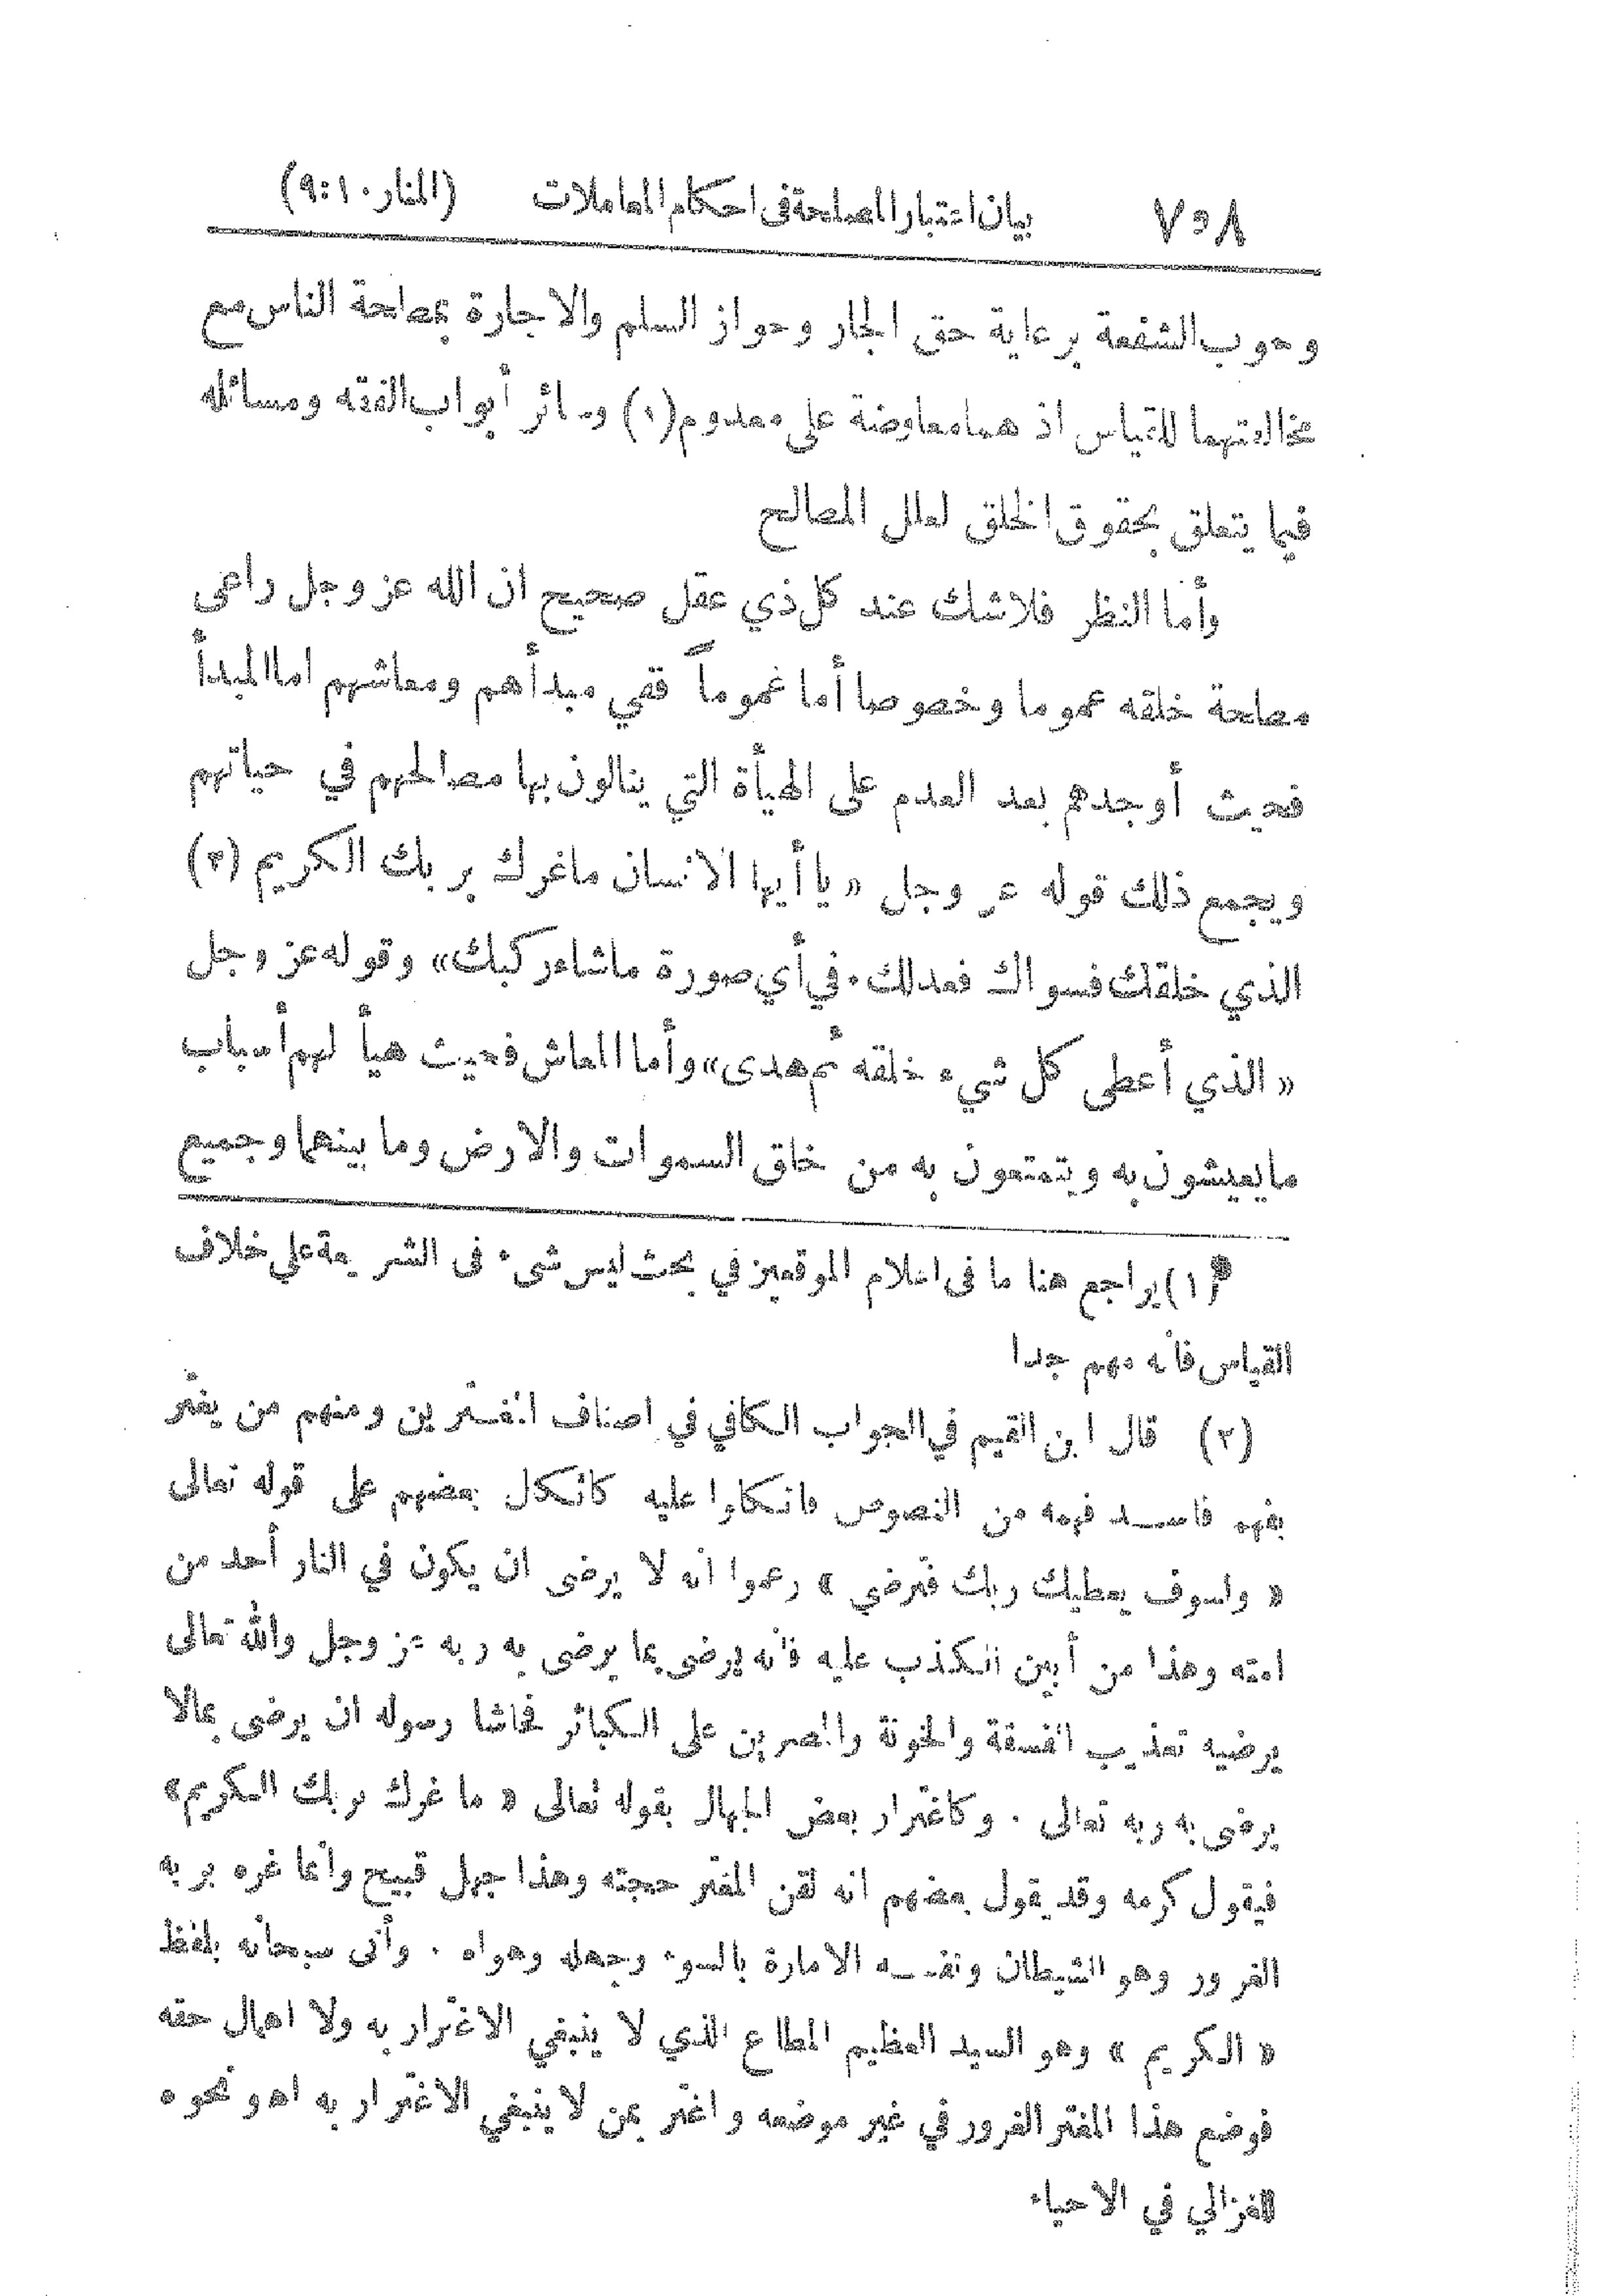 ٧٥٨ بيان اعتبار المصلحة فى احكام المعاملات (المنار ١٠:٩)
وجوب الشفعة برعاية حق الجار وجواز السلم والاجارة بمصلحة الناس مع
مخالفتهما للقياس اذ هما معاوضة على معدوم (١) وسائر أبواب الفقه ومسائله
فيما يتعلق بحقوق الخلق لعلل المصالح
وأما النظر فلا شك عند كل ذي عقل صحيح ان الله عز وجل راعى
مصلحة خلقه عموما وخصوصا أما عموماً ففي مبدأهم ومعاشهم اما المبدأ
فحيث أوجدهم بعد العدم على الهيأة التي ينالون بها مصالحهم في حياتهم
ويجمع ذلك قوله عز وجل « يا أيها الانسان ما غرك بربك الكريم (٢)
الذي خلقك فسواك فعدلك . في أي صورة ما شاء ركبك » وقوله عز وجل
« الذي أعطى كل شيء خلقه ثم هدى » وأما المعاش فحيث هيأ لهم أسباب
ما يعيشون به ويتمتعون به من خلق السموات والارض وما بينهما وجميع
(١) يراجع هنا ما فى اعلام الموقعين في بحث ليس شىء فى الشريعة على خلاف
القياس فانه مهم جدا
(٢) قال ابن القيم في الجواب الكافي في اصناف المغترين ومنهم من يغتر
بفهم فاسد فهمه من النصوص فاتكلوا عليه كاتكال بعضهم على قوله تعالى
« ولسوف يعطيك ربك فترضي » زعموا انه لا يرضى ان يكون في النار أحد من
امته وهذا من أبين الكذب عليه فانه يرضى بما يرضى به ربه عز وجل والله تعالى
يرضيه تعذيب الفسقة والخونة والمصرين على الكبائر فحاشا رسوله ان يرضى بما لا
يرضى به ربه تعالى . وكاغترار بعض الجهال بقوله تعالى « ما غرك بربك الكريم »
فيقول كرمه وقد يقول بعضهم انه لقن المغتر حجته وهذا جهل قبيح وانما غره بربه
الغرور وهو الشيطان ونفسه الامارة بالسوء وجهله وهواه . وأتى سبحانه بلفظ
« الكريم » وهو السيد العظيم المطاع الذي لا ينبغي الاغترار به ولا اهمال حقه
فوضع هذا المغتر الغرور في غير موضعه واغتر بمن لا ينبغي الاغترار به اه ونحوه
للغزالي في الاحياء